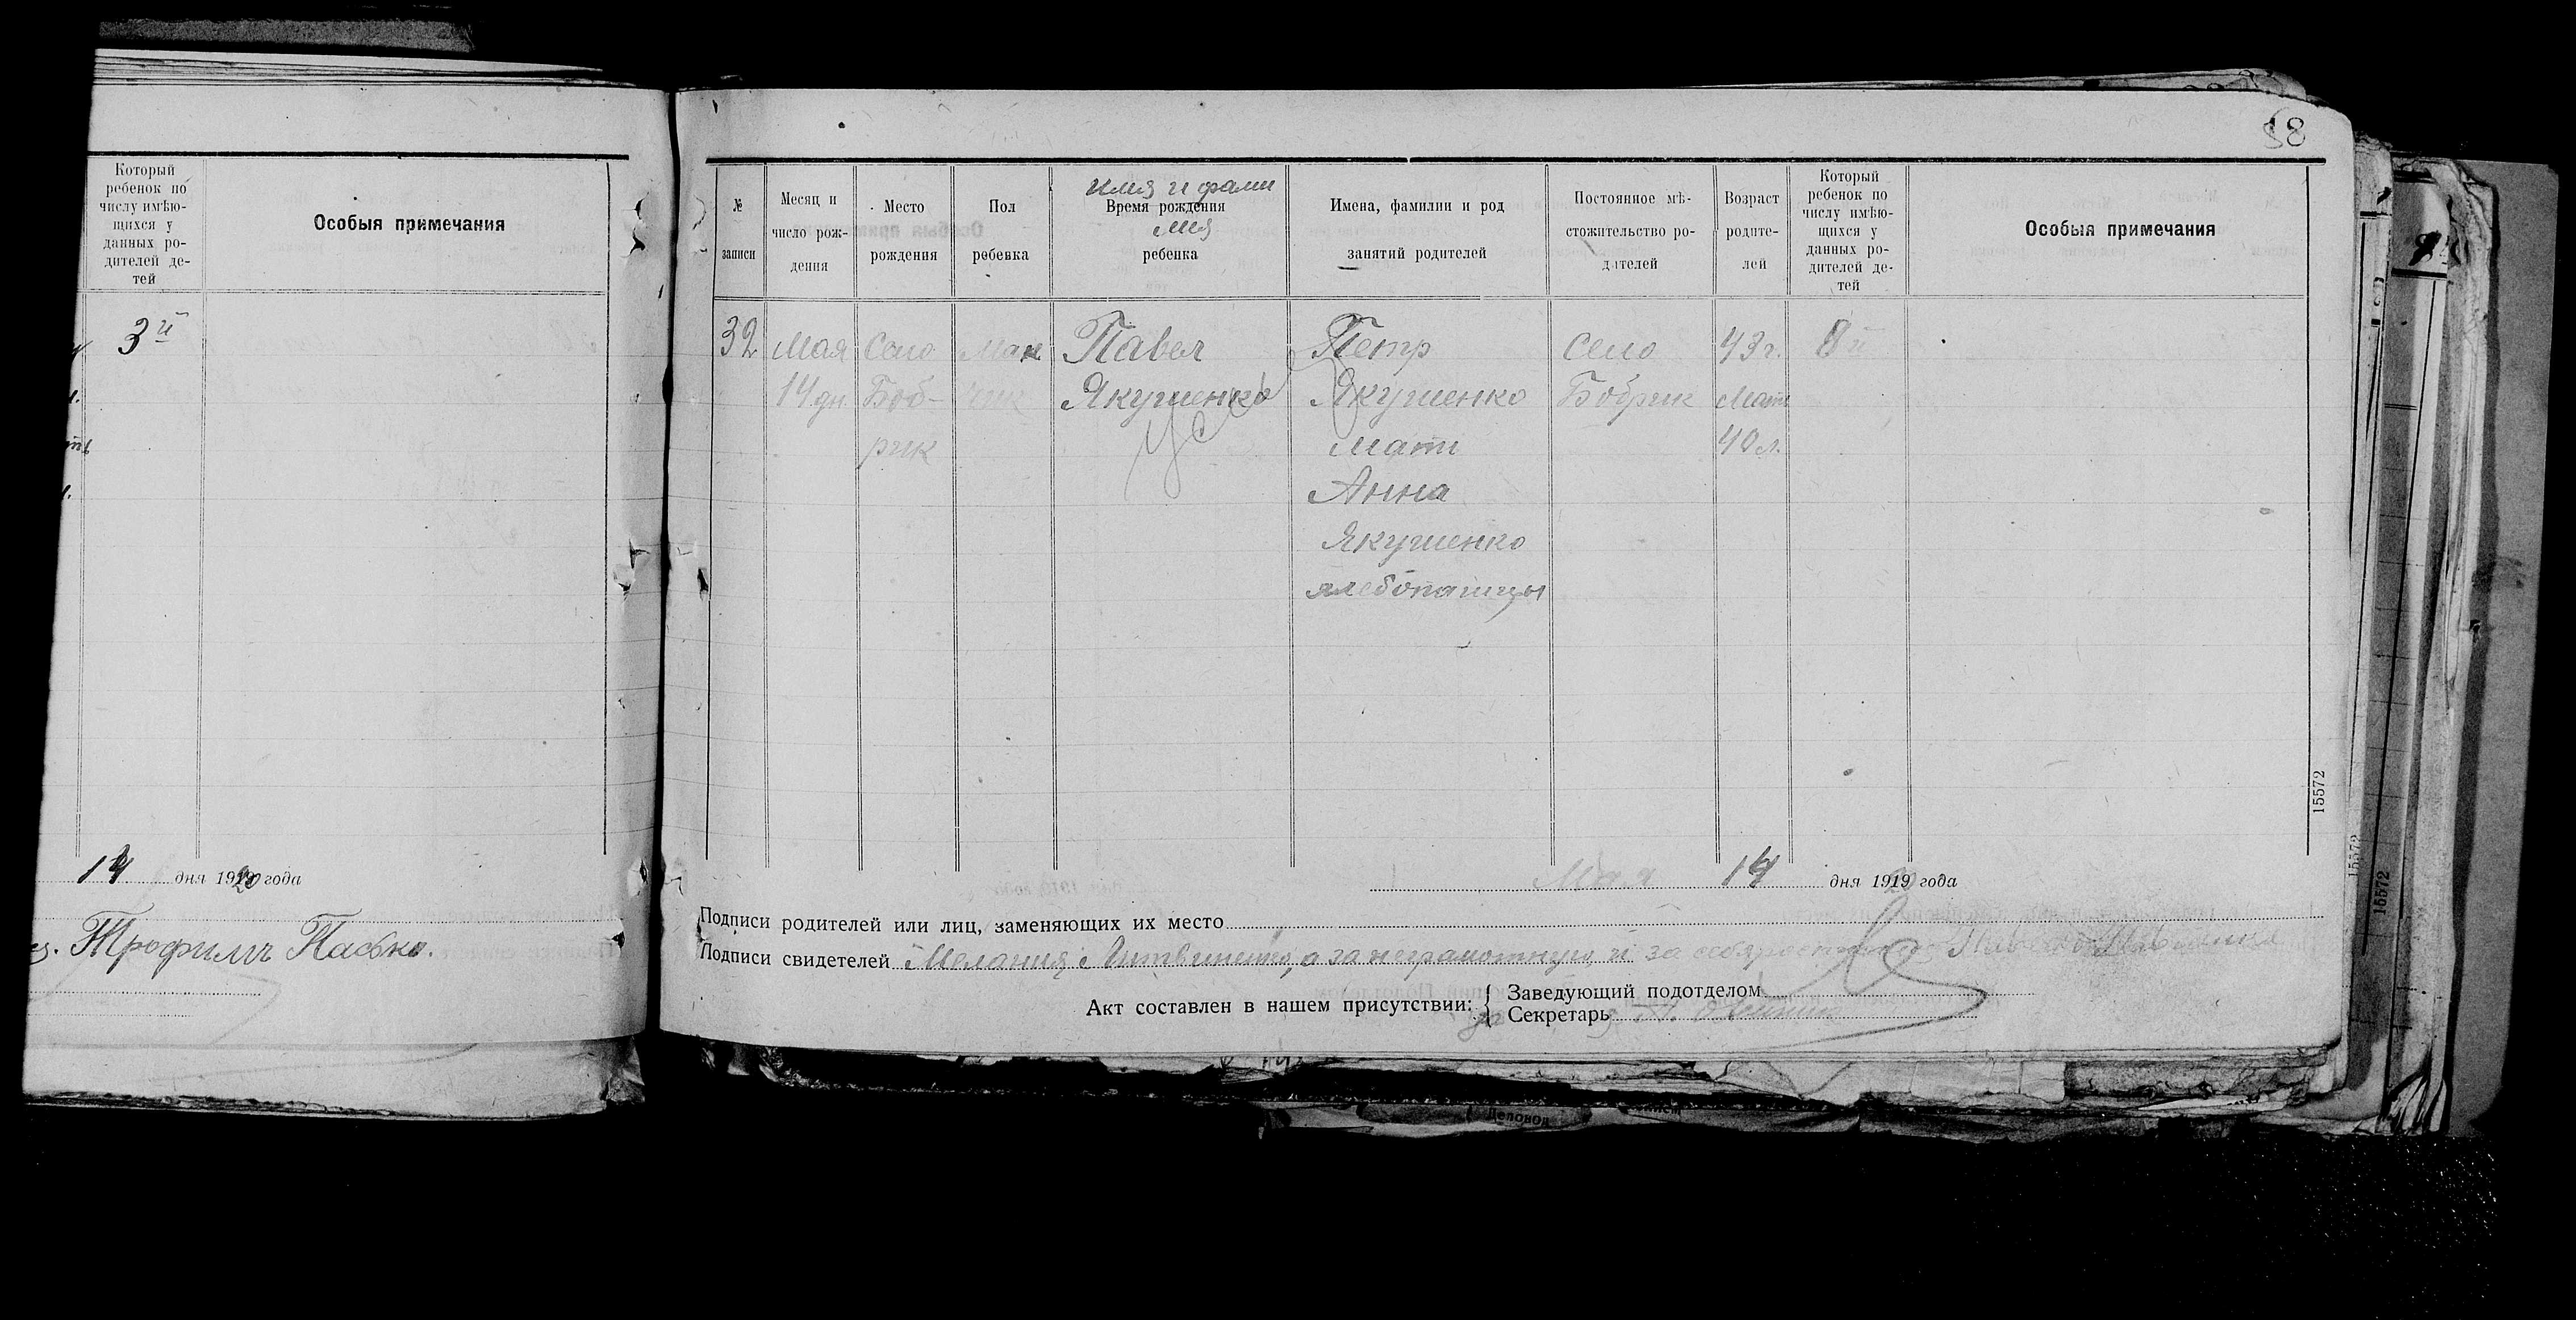 Который
ребенок по
числу имѣю-
щихся у
данных ро-
дителей де-
тей
Особыя примечания
3й
14 дня 1920 года
Трофимъ Пасько.
18
№
записи
Месяц и
число рож-
дения
Место
рождения
Пол
ребенка
имя и фами
Время рождения
лия
ребенка
Имена, фамилии и род
занятий родителей
Постоянное мѣ-
стожительство ро-
дителей
Возраст
родите-
лей
Который
ребенок по
числу имѣю-
щихся у
данных ро-
дителей де-
тей
Особыя примечания
32
Мая
14 дн.
Село
Боб-
рик
Павел
Якушенко
Петр
Якушенко
мать
Анна
Якушенко
хлебопашцы
село
Бобрик
43 г.
Мать
40 л.
8й
15572
Мая 14 дня 1919 года
Подписи родителей или лиц, заменяющих их место
Подписи свидетелей Мелания Литвиненко, а за неграмотную и за себя
Акт составлен в нашем присутствии:
Заведующий подотделом
Секретарь
15572
15572